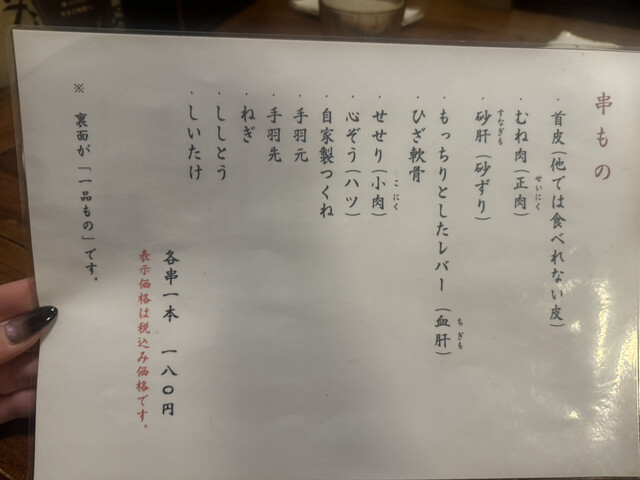 串もの
・首皮(他では食べれない皮)
・むね肉(正肉)
せいにく
・砂肝(砂ずり)
すなぎも
・もっちりとしたレバー(血肝)
ちぎも
・ひざ軟骨
・せせり(小肉)
こにく
・心ぞう(ハツ)
・自家製つくね
・手羽元
・手羽先
・ねぎ
・ししとう
・しいたけ
各串一本 一八〇円
表示価格は税込み価格です。
※ 裏面が「一品もの」です。